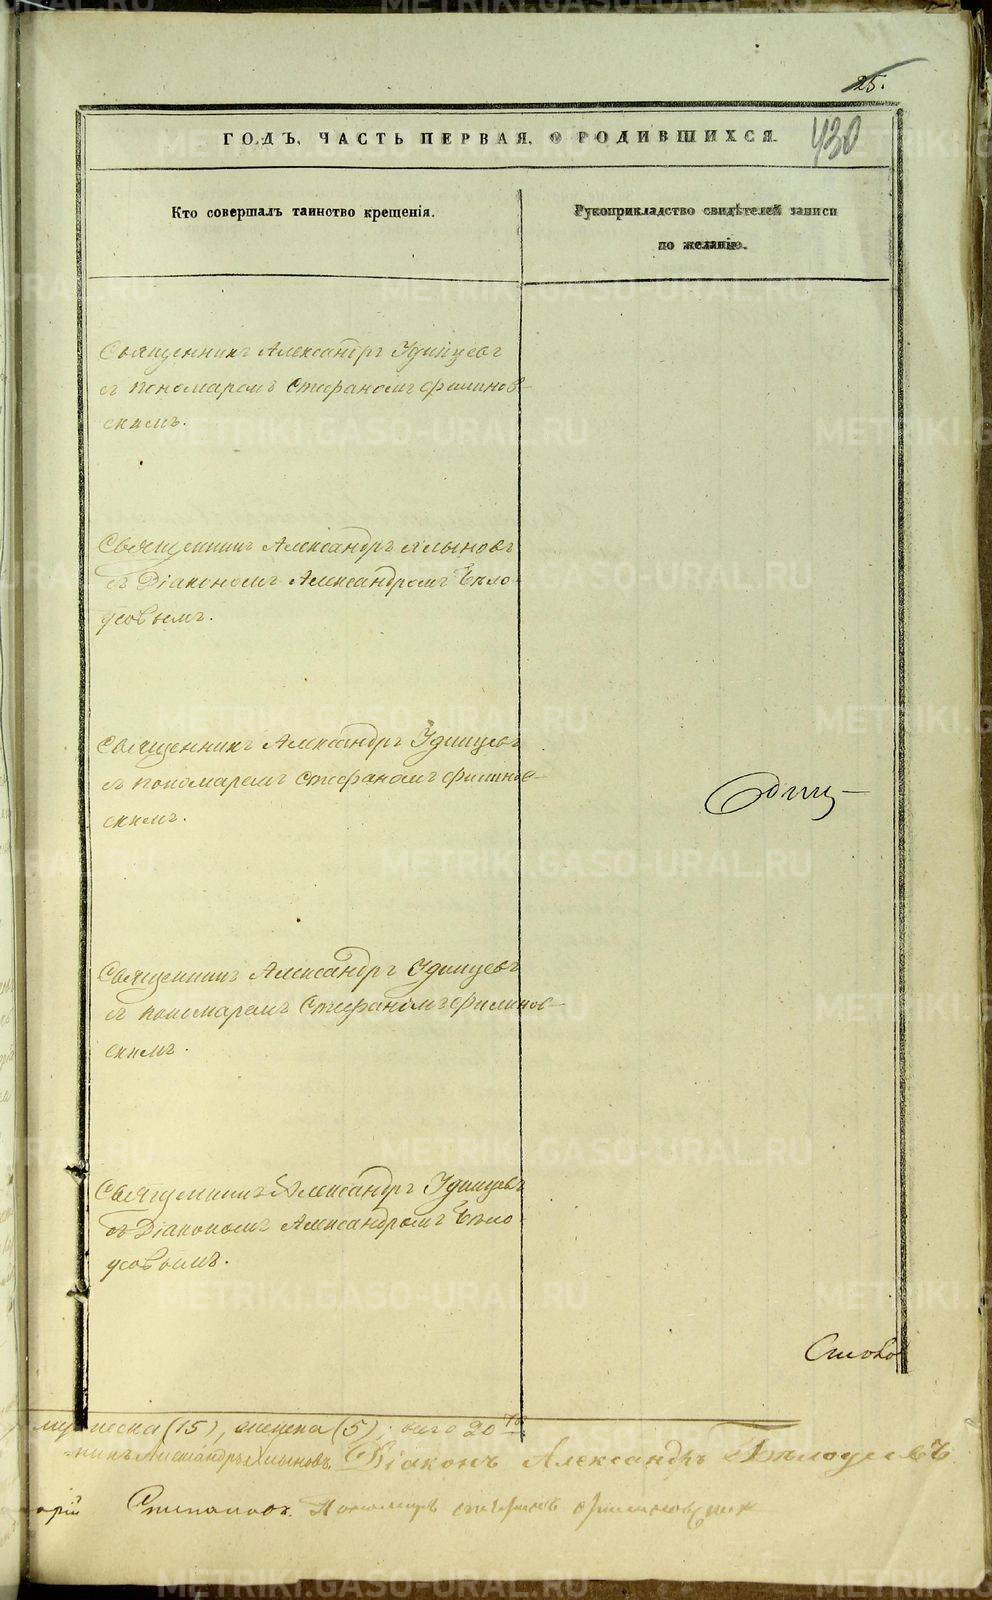 25.
430
ГОДЪ, ЧАСТЬ ПЕРВАЯ, О РОДИВШИХСЯ.
Кто совершалъ таинство крещенія.
Рукоприкладство свидѣтелей записи
по желанію.
Священникъ Александръ Удинцевъ
съ пономаремъ Стефаномъ Филинов-
скимъ.
Священникъ Александръ Хлыновъ
съ Діакономъ Александромъ Бѣло-
усовымъ.
Священникъ Александръ Удинцевъ
съ пономаремъ Стефаномъ Филинов-
скимъ.
Священникъ Александръ Удинцевъ
съ пономаремъ Стефаномъ Филинов-
скимъ.
Священникъ Александръ Удинцевъ
съ Діакономъ Александромъ Бѣло
усовымъ.
мужеска (15), женска (5); всего 20ть
никъ Александръ Хлыновъ. Діаконъ Александръ Бѣлоусовъ
орій Степановъ. Пономарь Стефанъ Филиновскій
METRIKI.GASO-URAL.RU